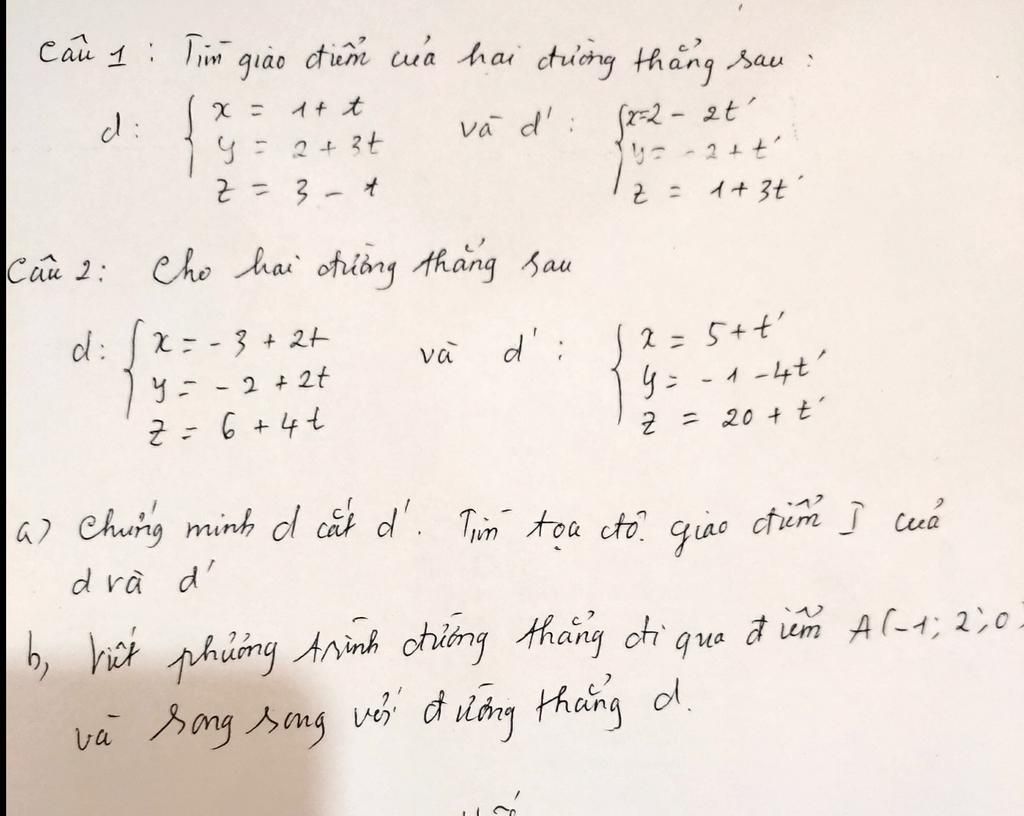 Câu 1 : Tìm giao điểm của hai đường thẳng sau :
d: { x = 1 + t và d' : { x = 2 - 2t'
y = 2 + 3t y = - 2 + t'
z = 3 - t z = 1 + 3t'
Câu 2 : Cho hai đường thẳng sau
d: { x = - 3 + 2t và d' : { x = 5 + t'
y = - 2 + 2t y = - 1 - 4t'
z = 6 + 4t z = 20 + t'
a) Chứng minh d cắt d'. Tìm tọa độ giao điểm I của
d và d'
b, Viết phương trình đường thẳng đi qua điểm A(-1; 2; 0)
và song song với đường thẳng d.